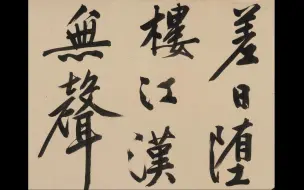 差日堕
樓江漢
無聲